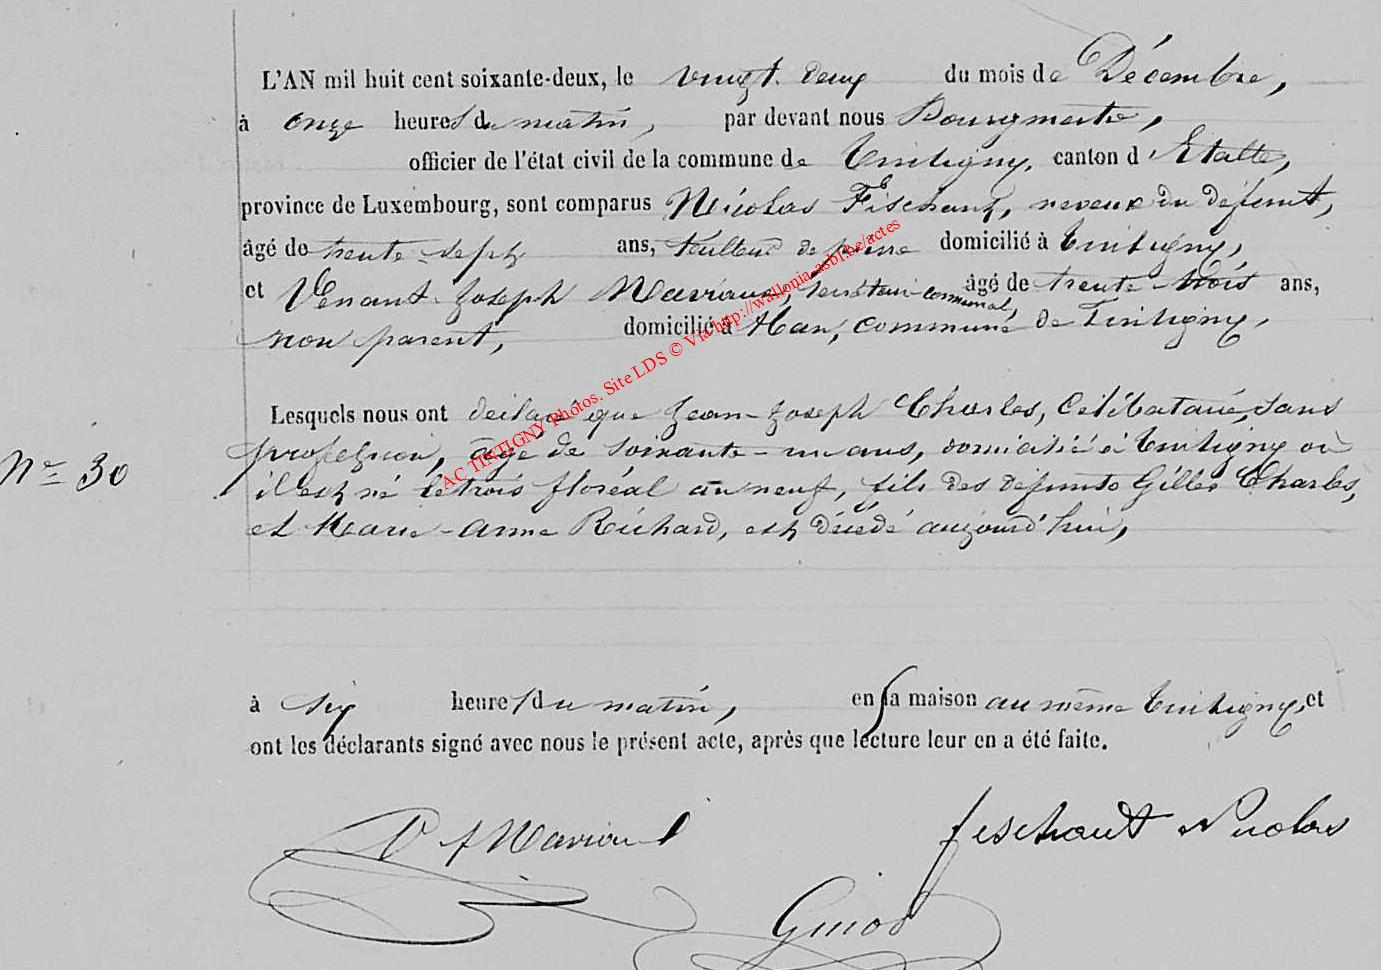 L'AN mil huit cent soixante-deux, le vingt-deux du mois de Décembre,
à onze heures du matin, par devant nous Bourgmestre,
officier de l'état civil de la commune de Tintigny, canton d'Etalle,
province de Luxembourg, sont comparus Nicolas Fischaux, neveux du défunt,
âgé de trente-sept ans, tailleur de pierre domicilié à Tintigny,
et Venant-Joseph Maviaux, secrétaire communal, âgé de trente-trois ans,
non parent, domicilié à Han, commune de Tintigny,
Lesquels nous ont déclaré que Jean-Joseph Charles, célibataire, sans
N° 30
profession, âgé de soixante-un ans, domicilié à Tintigny où
il est né le trois floréal an neuf, fils des défunts Gilles Charles,
et Marie-Anne Richard, est décédé aujourd'hui,
à six heures du matin, en sa maison au même Tintigny, et
ont les déclarants signé avec nous le présent acte, après que lecture leur en a été faite.
fischaut Nicolas
AC TINTIGNY Photos. Site LDS © Via http://wallonia-asbl.be/actes